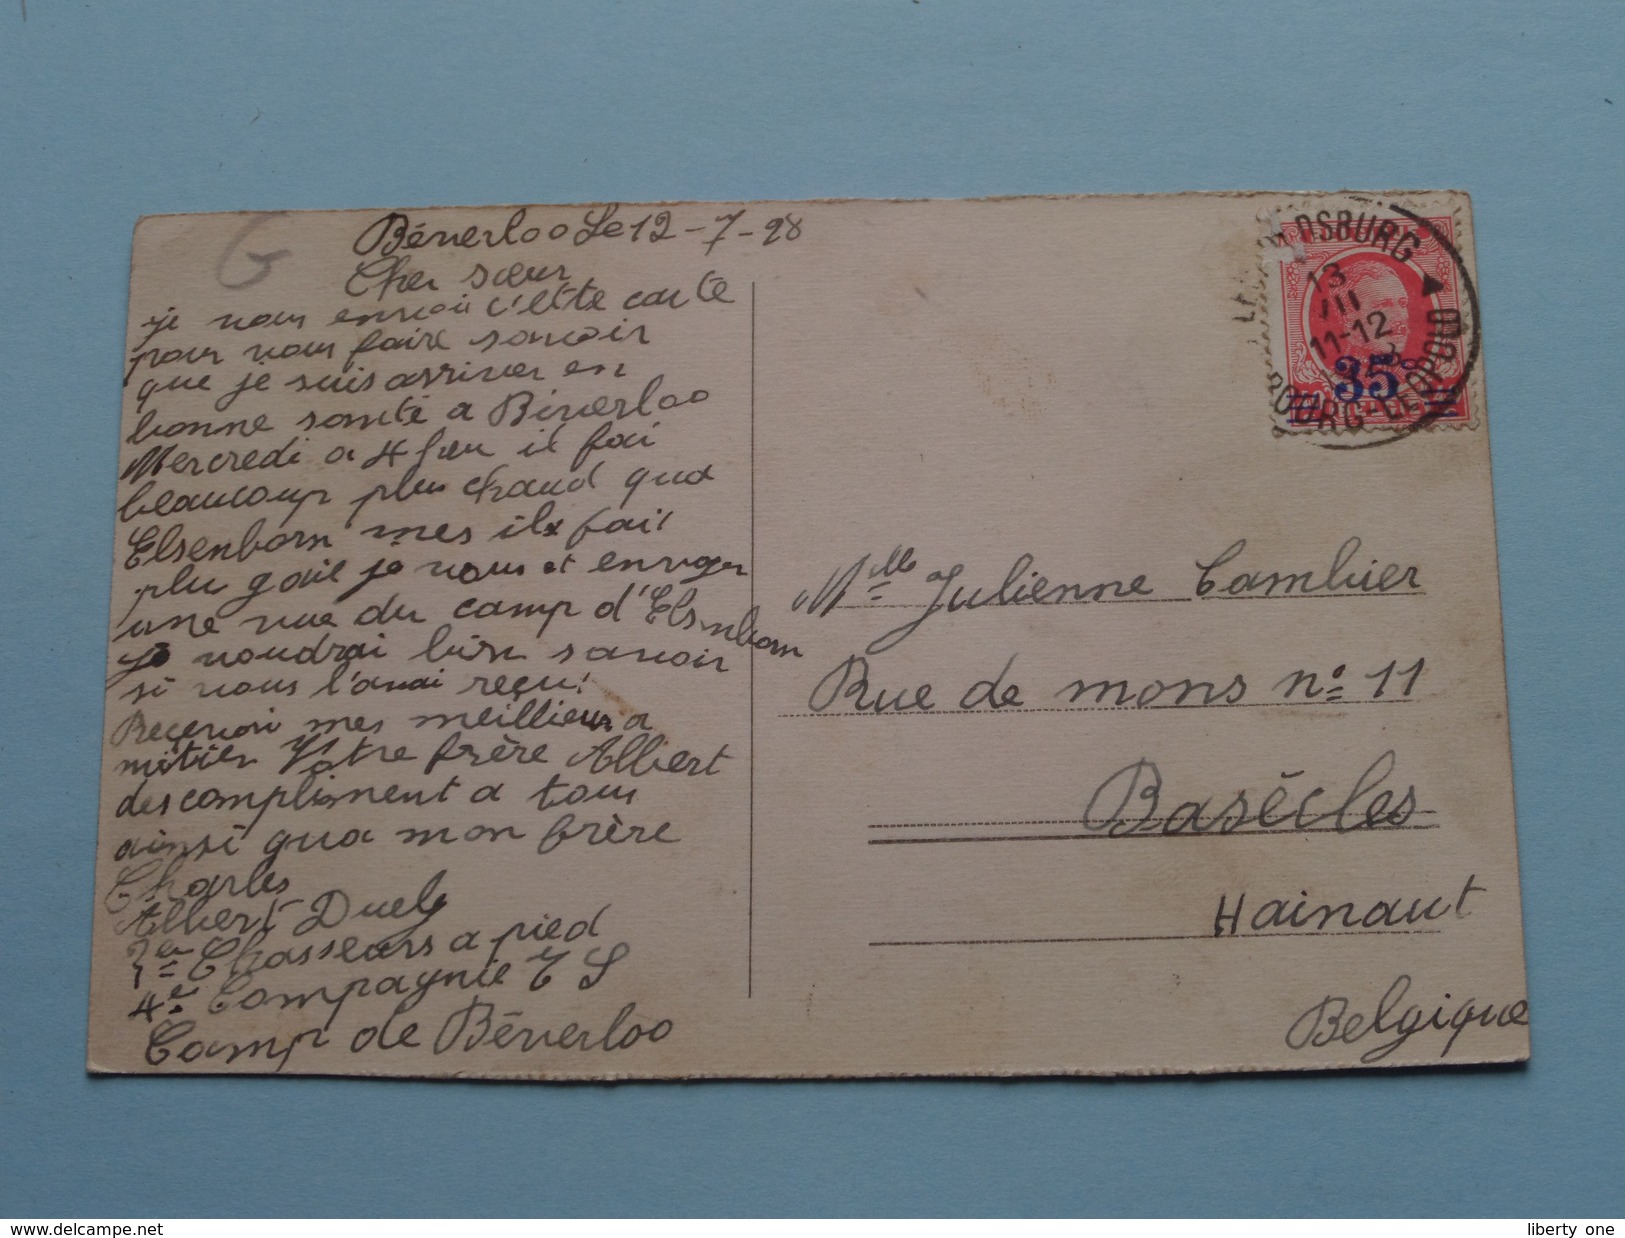 Béverloo Le 12-7-28
Cher sœur
je vous envoii c'ette carte
pour vous faire savoir
que je suis arriver en
bonne santé a Béverloo
Mercredi a 4 heu il fai
beaucoup plus chaud qua
Elsenborn mes il fait
plu gaie je vous et envoyer
une vue du camp d'Elsenborn
je voudrai bien savoir
si vous l'avai reçu!
Recevoi mes meillieur a
mitiér Votre frère Albert
des compliment a tous
ainsi qua mon frère
Charles
Albert
Chasseurs a pied
4e Compagnie
Camp de Béverloo
Mlle Julienne Cambier
Rue de mons no 11
Basècles
Hainaut
Belgique
13
VII
11-12
BOURG-LEOPOLD
35c
delcampe.net
liberty_one